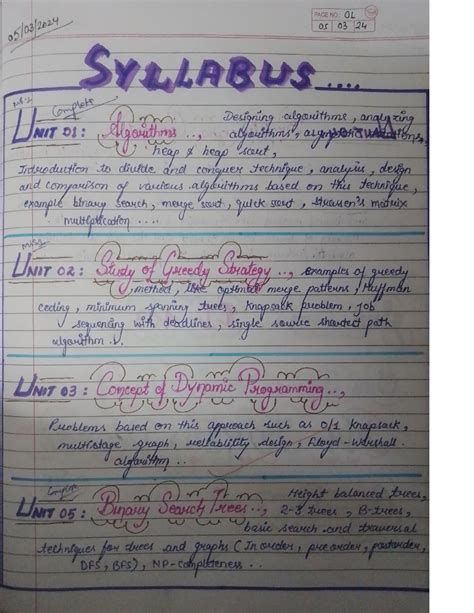 05/03/2024
PAGE NO: 01
05 03 24
SYLLABUS....
Complete
UNIT 01: Algorithms.., Designing algorithms, analyzing
algorithms, asymptotic notations,
heap & heap sort,
Introduction to divide and conquer technique, analysis, design
and comparison of various algorithms based on this technique,
example binary search, merge sort, quick sort, strassen's matrix
multiplication ....
UNIT 02: Study of Greedy Strategy.., Examples of greedy
method, like optimal merge patterns, Huffman
coding, minimum spanning trees, knapsack problem, job
sequencing with deadlines, single source shortest path
algorithm...
UNIT 03: Concept of Dynamic Programming..,
Problems based on this approach such as 0/1 knapsack,
multistage graph, reliability design, Floyd-Warshall
algorithm ..
Complete
UNIT 05: Binary Search Trees.., Height balanced trees,
2-3 trees, B-trees,
basic search and traversal
techniques for trees and graphs (In order, pre order, postorder,
DFS, BFS), NP-completeness ..